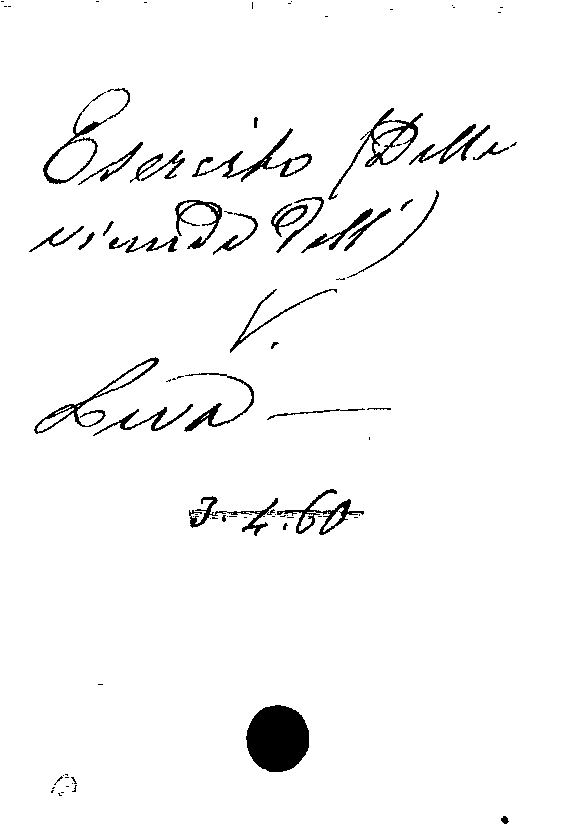 Esercito (Delle
vicende dell')
V.
Leva —
3.4.60